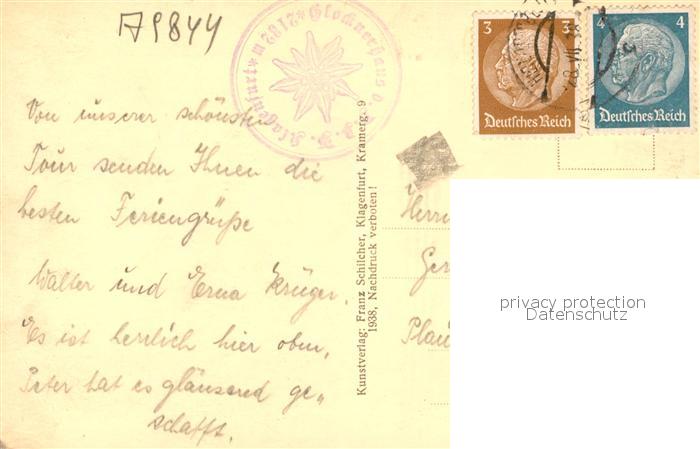 A9844
Glocknerhaus
Klagenfurt
3 3
Deutsches Reich
4
Deutsches Reich
Von unserer schönsten
Tour senden Ihnen die
besten Feriengrüße
Walter und Erna Krüger.
Es ist herrlich hier oben,
Peter hat es glänsend ge„
schafft.
Kunstverlag: Franz Schilcher, Klagenfurt, Kramerg. 9
1938, Nachdruck verboten!
Herrn
Ger
Plau
privacy protection
Datenschutz